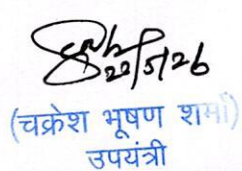 22/5/26
(चक्रेश भूषण शर्मा)
उपयंत्री